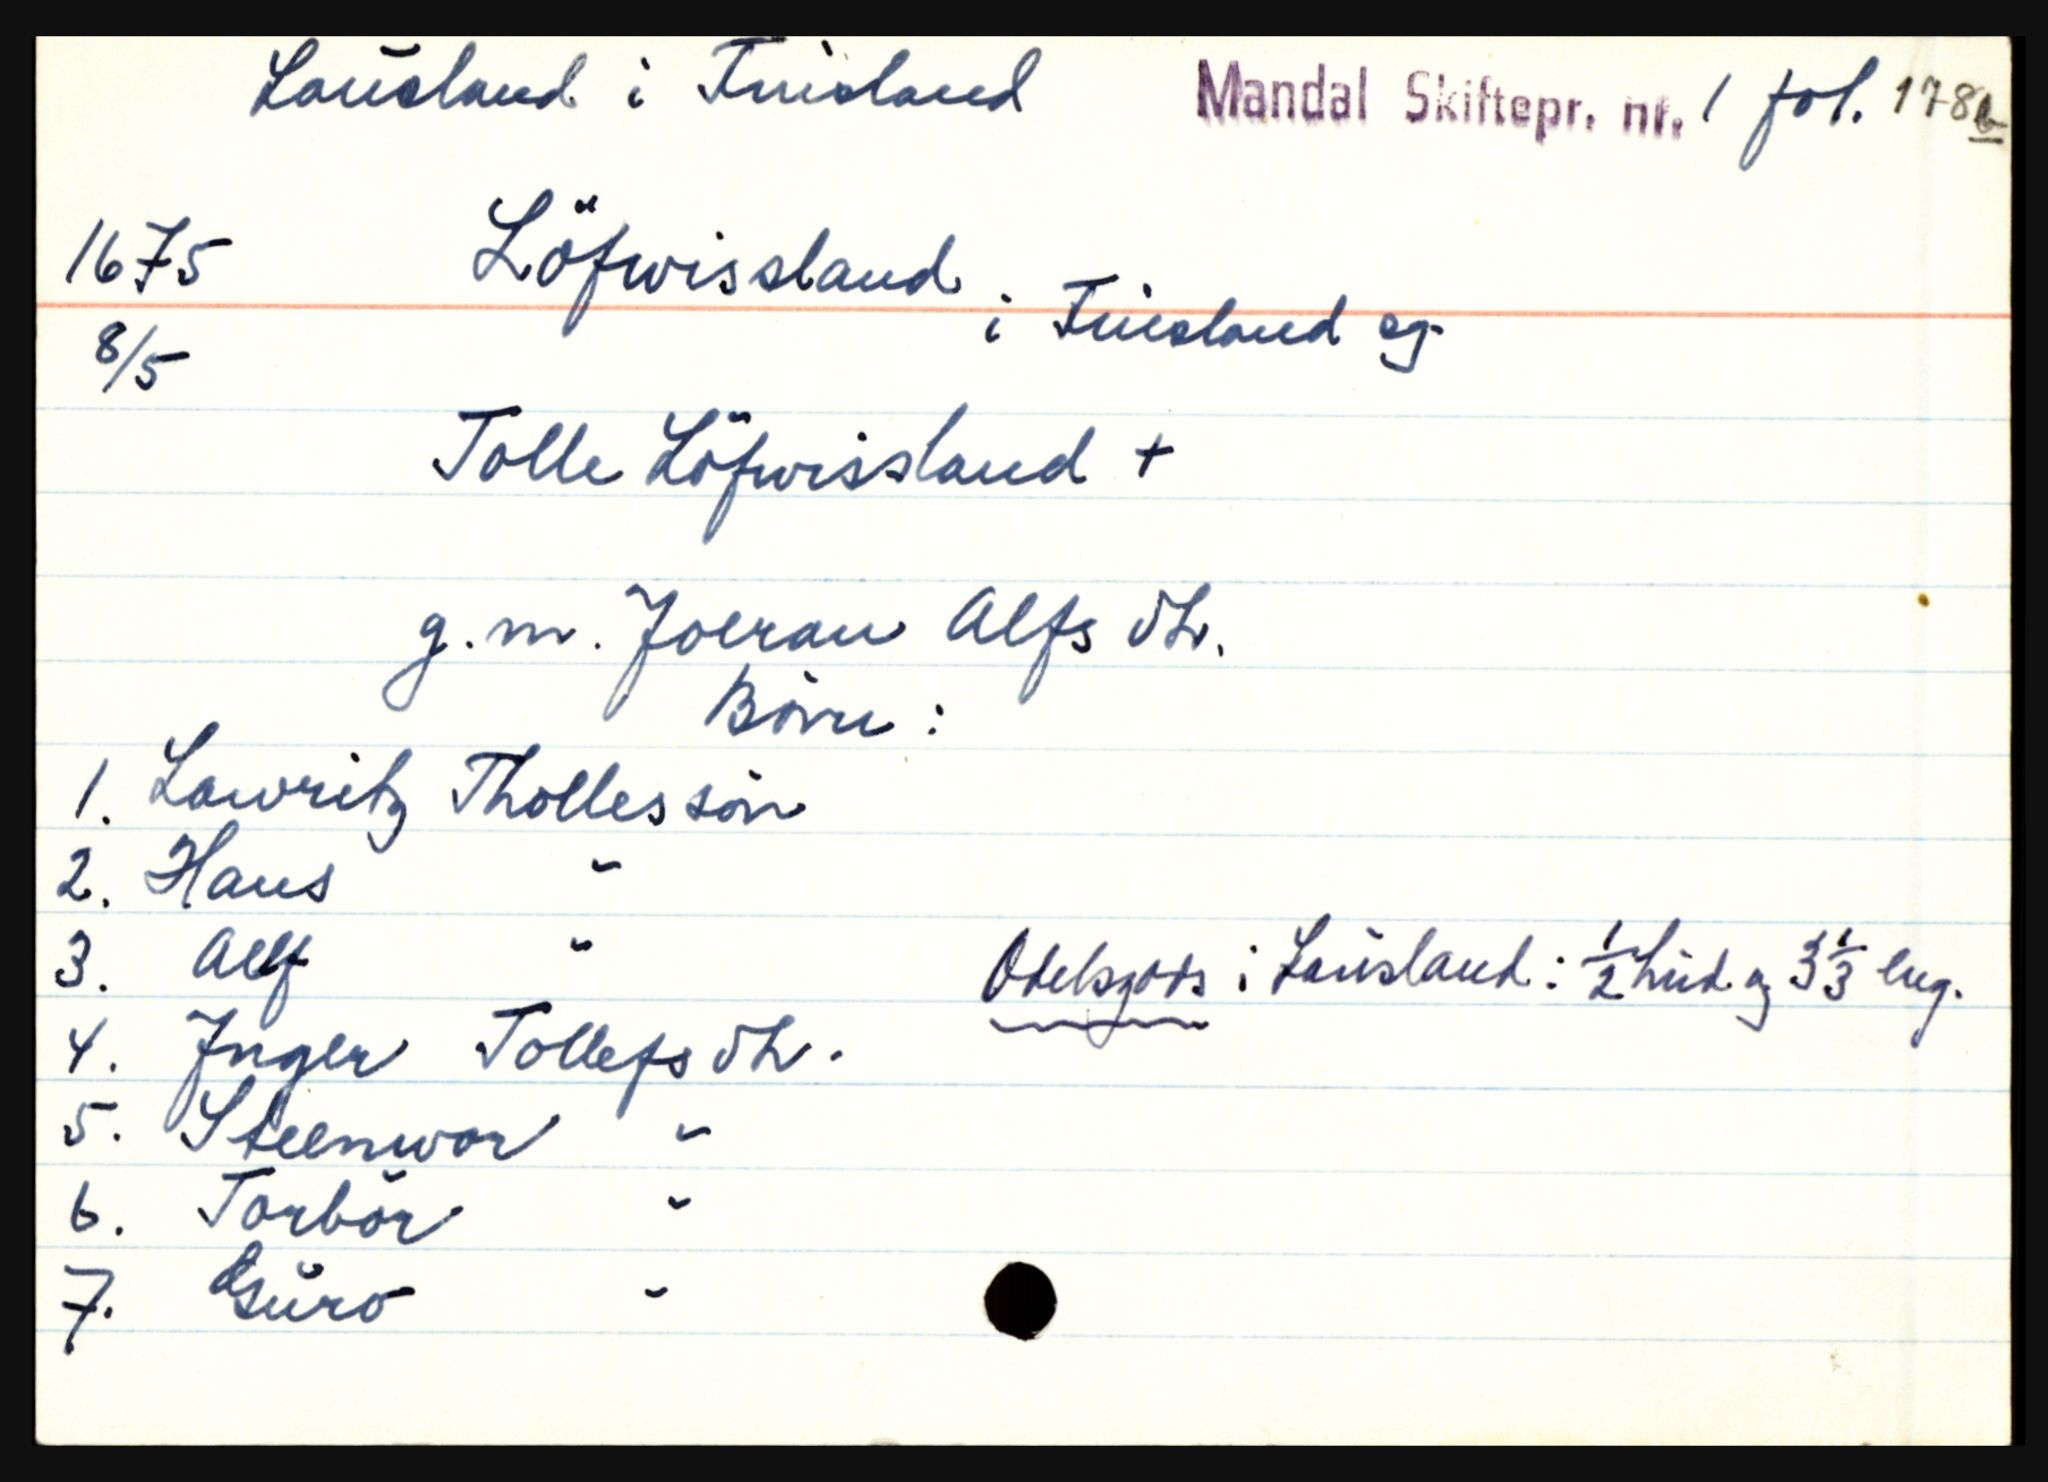 Lausland i Finsland Mandal Skiftepr. nr. 1 fol. 178b
1675 Löfwissland
8/5 i Finsland sg.
Tolle Löfwissland +
g. m. Joeran Alfs dtr.
Børn:
1. Lawritz Thollessön
2. Hans "
3. Alf " Odelsgods i Lausland: 1/2 hud og 3 1/3 eng.
4. Inger Tollefs dtr.
5. Steenwor "
6. Torbör "
7. Guro "